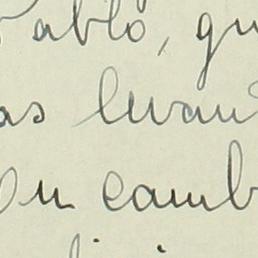 Pablo, qu
as levan
En camb